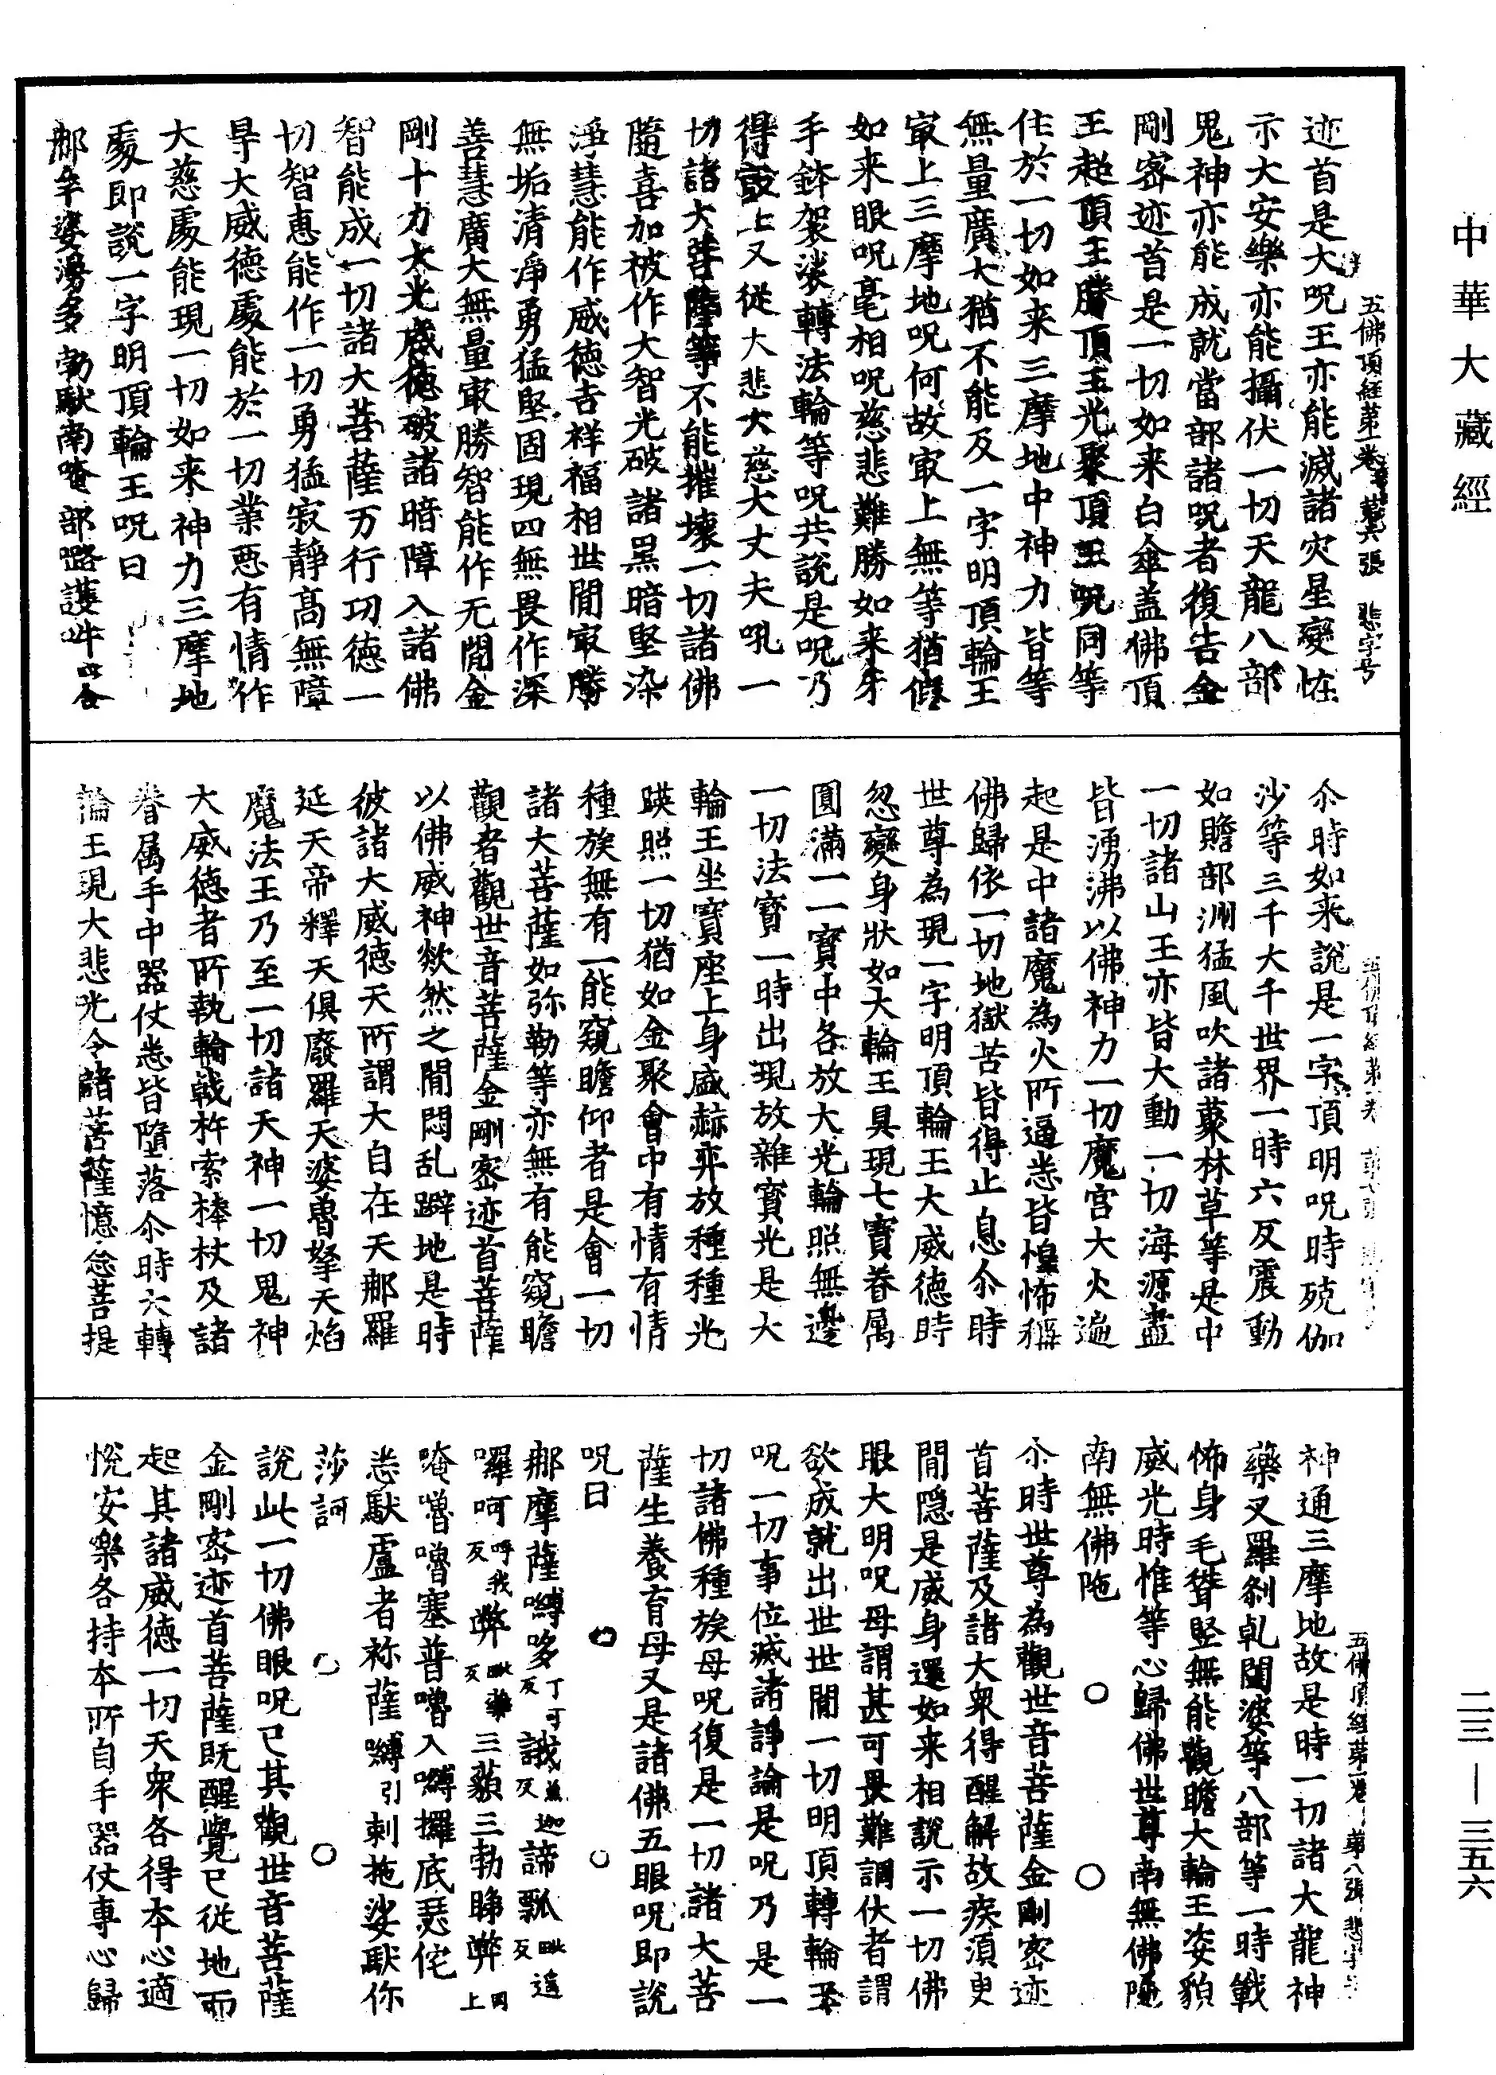 中華大藏經
二三—三五六
五佛頂經第一卷 第六張 悲字号
迹首是大呪王亦能滅諸灾星變恠
示大安樂亦能攝伏一切天龍八部
鬼神亦能成就當部諸呪者復告金
剛密迹首是一切如来白傘盖佛頂
王超頂王勝頂王光聚頂王呪同等
住於一切如来三摩地中神力皆等
無量廣大猶不能及一字明頂輪王
㝡上三摩地呪何故㝡上無等猶假
如来眼呪毫相呪慈悲難勝如来牙
手鉢袈裟轉法輪等呪共說是呪乃
得㝡上又從大悲大慈大丈夫吼一
切諸大菩薩等不能摧壞一切諸佛
隨喜加被作大智光破諸黑暗堅染
淨慧能作威德吉祥福相世間㝡勝
無垢清淨勇猛堅固現四無畏作深
善慧廣大無量㝡勝智能作无閒金
剛十力大光威德破諸暗障入諸佛
智能成一切諸大菩薩万行功德一
切智惠能作一切勇猛寂靜高無障
㝵大威德處能於一切業惡有情作
大慈處能現一切如来神力三摩地
處即說一字明頂輪王呪曰
那牟婆湯多勃馱南唵部嚕護𤙖四合
尒時如来說是一字頂明呪時殑伽
沙等三千大千世界一時六反震動
如贍部洲猛風吹諸藂林草等是中
一切諸山王亦皆大動一切海源盡
皆湧沸以佛神力一切魔宮大火遍
起是中諸魔為火所逼悉皆惶怖稱
佛歸依一切地獄苦皆得止息尒時
世尊為現一字明頂輪王大威德時
忽變身狀如大輪王具現七寶眷属
圓滿一一寶中各放大光輪照無邊
一切法寶一時出現放雜寶光是大
輪王坐寶座上身威赫弈放種種光
暎照一切猶如金聚會中有情有情
種族無有一能窺瞻仰者是會一切
諸大菩薩如弥勒等亦無有能窺瞻
觀者觀世音菩薩金剛密迹首菩薩
以佛威神欻然之間悶乱躃地是時
彼諸大威德天所謂大自在天那羅
延天帝釋天俱廢羅天婆魯拏天焰
魔法王乃至一切諸天神一切鬼神
大威德者所執輪戟杵索棒杖及諸
眷属手中器仗悉皆墮落尒時大轉
輪王現大悲光令諸菩薩憶念菩提
五佛頂經第一卷 第八張 悲字号
神通三摩地故是時一切諸大龍神
藥叉羅剎乹闥婆等八部等一時戰
怖身毛聳竪無能觀瞻大輪王姿貌
威光時惟等心歸佛世尊南無佛陁
南無佛陁
尒時世尊為觀世音菩薩金剛密迹
首菩薩及諸大衆得醒解故疾湏臾
間隱是威身還如来相說示一切佛
眼大明呪母謂甚可畏難調伏者謂
欲成就出世世間一切明頂轉輪王
呪一切事位滅諸諍論是呪乃是一
切諸佛種族母呪復是一切諸大菩
薩生養育母又是諸佛五眼呪即說
呪曰
那摩薩嚩哆丁可反 誐蘖迦反 諦瓢毗遥反
囉呵呼我反 弊毗藥反 三藐三勃睇弊同上
唵嚕嚕塞普嚕入嚩攞底瑟侘
悉馱盧者祢薩嚩引剌拖娑馱你
莎訶
說此一切佛眼呪已其觀世音菩薩
金剛密迹首菩薩既醒覺已從地而
起其諸威德一切天衆各得本心適
悅安樂各持本所自手器仗專心歸